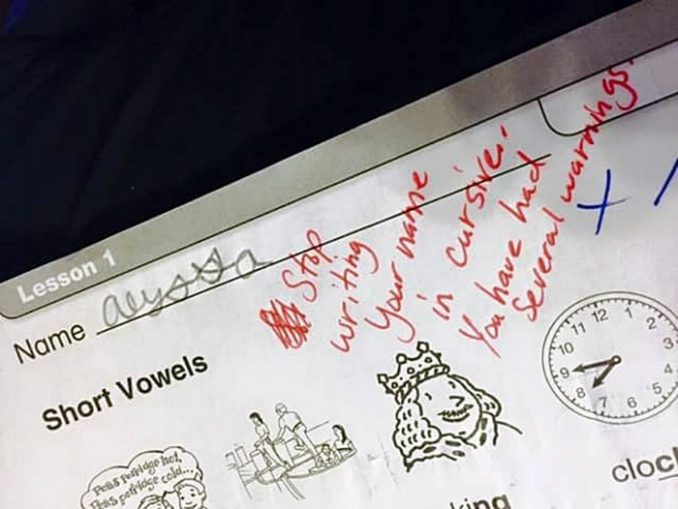 Lesson 1
Name alyssa
Stop
writing
Your name
in cursive.
You have had
several warnings.
+
Short Vowels
Peas porridge hot,
Peas porridge cold...
king
11 12 1 2 3 4 5 6 7 8 9 10
cloc